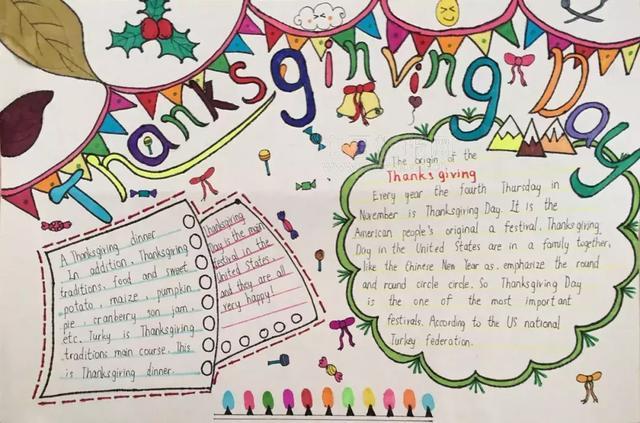 Thanksgiving Day
A Thanksgiving dinner
In addition, Thanksgiving
traditions, food and sweet
potato, maize, pumpkin
pie, cranberry son jam,
etc. Turky is Thanksgiving
traditions main course. This
is Thanksgiving dinner.
Thanksgiving
Day is the main
festival in the
United States,
and they are all
very happy!
The origin of the
Thanksgiving
Every year the fourth Thursday in
November is Thanksgiving Day. It is the
American people's original a festival, Thanksgiving
Day in the United States are in a family together,
like the Chinese New Year as, emphasize the round
and round circle circle. So Thanksgiving Day
is the one of the most important
festivals. According to the US national
Turkey federation.